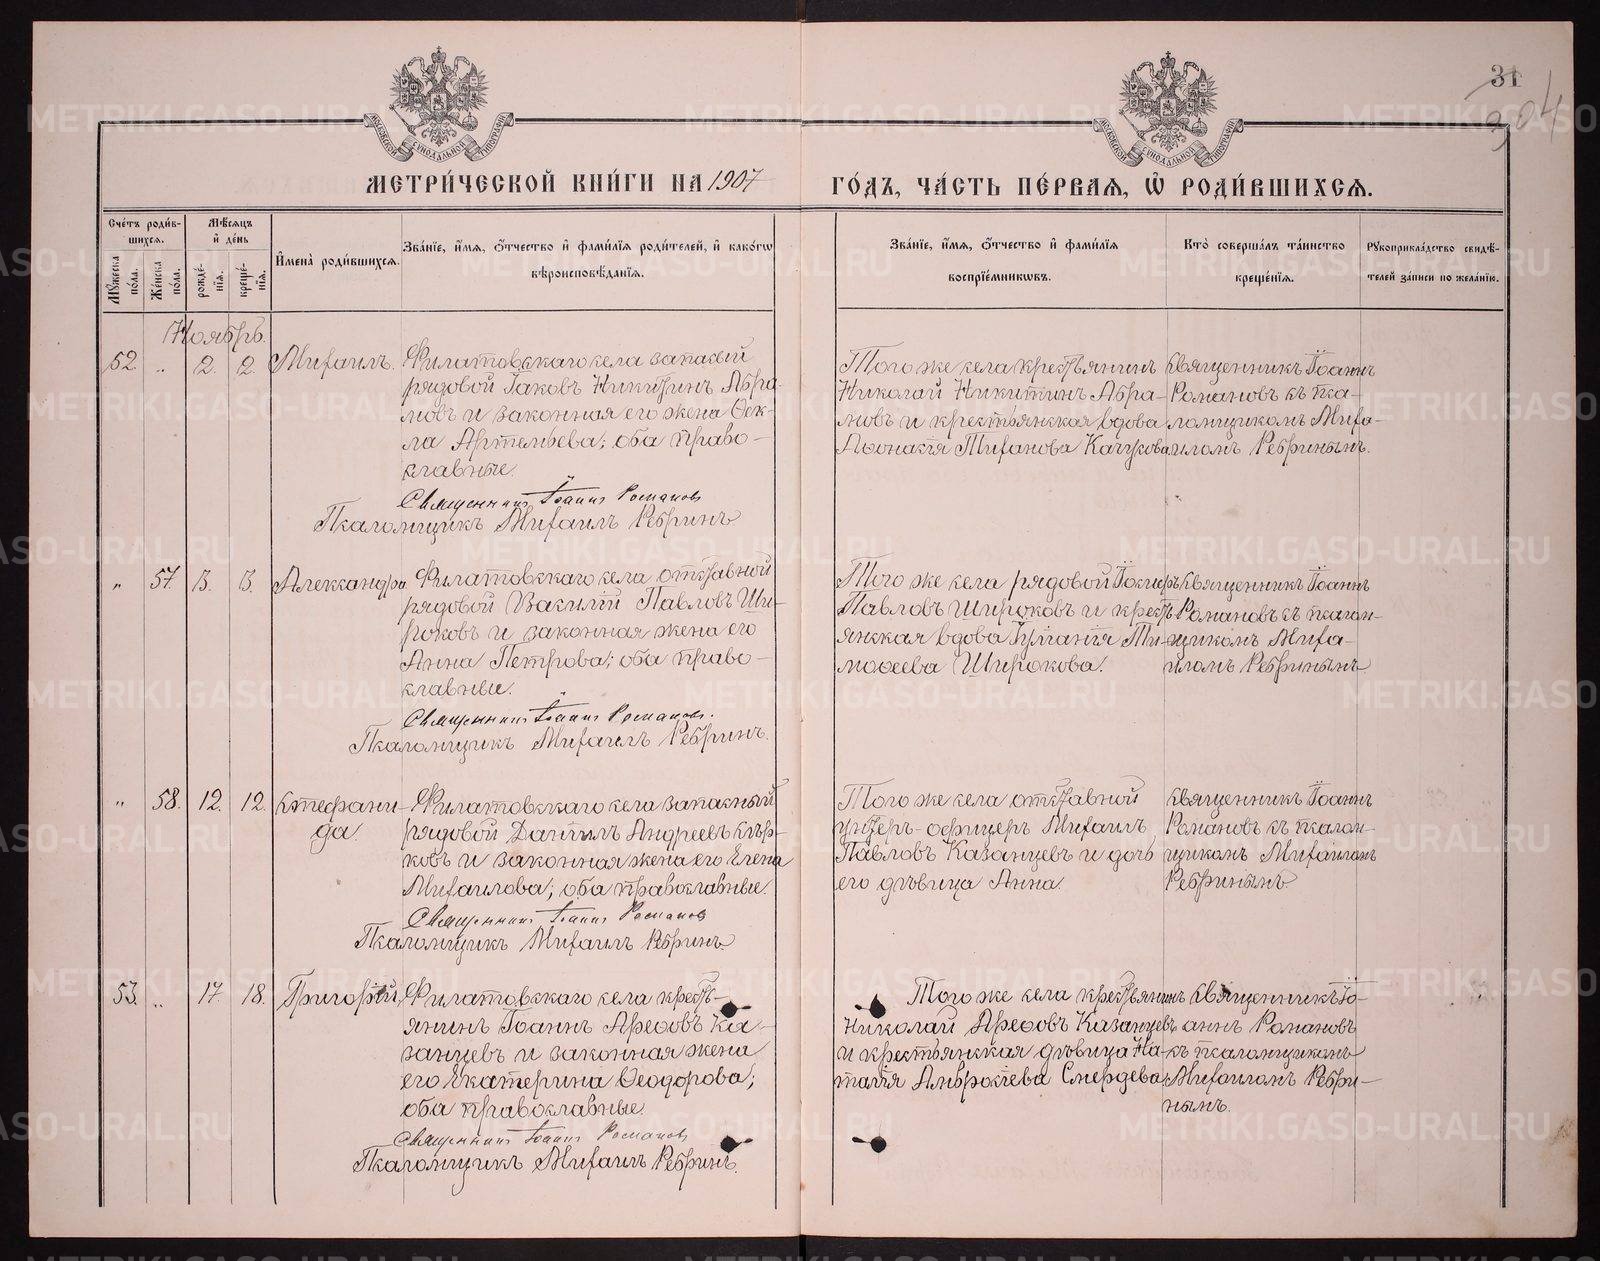 31
304
МЕТРИ́ЧЕСКОЙ КНИ́ГИ НА 1907
ГО́ДЪ, ЧА́СТЬ ПЕ́РВАѦ, Ѡ҆ РОДИ́ВШИХСѦ.
Сче́тъ роди́в-
шихсѧ.
Мѣ́сѧцъ
и҆ де́нь
Мꙋ́жеска по́ла.
Же́нска по́ла.
рожде́-
нїѧ.
креще́-
нїѧ.
И҆мена̀ роди́вшихсѧ.
Зва́нїе, и҆́мѧ, ѻ҆́тчество и҆ фами́лїѧ роди́телей, и҆ како́гѡ
вѣроисповѣ́данїѧ.
Зва́нїе, и҆́мѧ, ѻ҆́тчество и҆ фами́лїѧ
воспрїе́мникѡвъ.
Кто̀ соверша́лъ та́инство
креще́нїѧ.
Рꙋкоприкла́дство свидѣ́-
телей за́писи по жела́нїю.
Ноябрь.
52. „ 2. 2. Михаилъ.
Филатовскаго села запасный
рядовой Iаковъ Никитинъ Абра-
мовъ и законная его жена Ѳек-
ла Артемьева; оба право-
славные.
Священникъ Iоаннъ Романовъ
Псаломщикъ Михаилъ Ребринъ
Того же села крестьянинъ
Николай Никитинъ Абра-
мовъ и крестьянская вдова
Аѳонасія Тифанова Качусова
Священникъ Iоаннъ
Романовъ съ пса-
ломщикомъ Миха-
иломъ Ребринымъ.
„ 57. 3. 3. Александра
Филатовскаго села отставной
рядовой Василій Павловъ Ши-
роковъ и законная жена его
Анна Петрова; оба право-
славные.
Священникъ Iоаннъ Романовъ.
Псаломщикъ Михаилъ Ребринъ.
Того же села рядовой Iосифъ
Павловъ Широковъ и кресть-
янская вдова Iуліанія Ти-
моѳеева Широкова.
Священникъ Iоаннъ
Романовъ съ псалом-
щикомъ Миха-
иломъ Ребринымъ
„ 58. 12. 12. Стефани-
да.
Филатовскаго села запасный
рядовой Даніилъ Андреевъ Сѣр-
ковъ и законная жена его Елена
Михаилова; оба православные.
Священникъ Iоаннъ Романовъ
Псаломщикъ Михаилъ Ребринъ.
Того же села отставной
унтеръ-офицеръ Михаилъ
Павловъ Казанцевъ и дочь
его дѣвица Анна.
Священникъ Iоаннъ
Романовъ съ псалом-
щикомъ Михаиломъ
Ребринымъ
53. „ 17 18. Григорій,
Филатовскаго села кресть-
янинъ Iоаннъ Арефовъ Ка-
занцевъ и законная жена
его Екатерина Ѳеодорова;
оба православные.
Священникъ Iоаннъ Романовъ
Псаломщикъ Михаилъ Ребринъ.
Того же села крестьянинъ
Николай Арефовъ Казанцевъ
и крестьянская дѣвица На-
талія Амвросіева Смердева
Священникъ Iо-
аннъ Романовъ
съ псаломщикомъ
Михаиломъ Ребри-
нымъ.